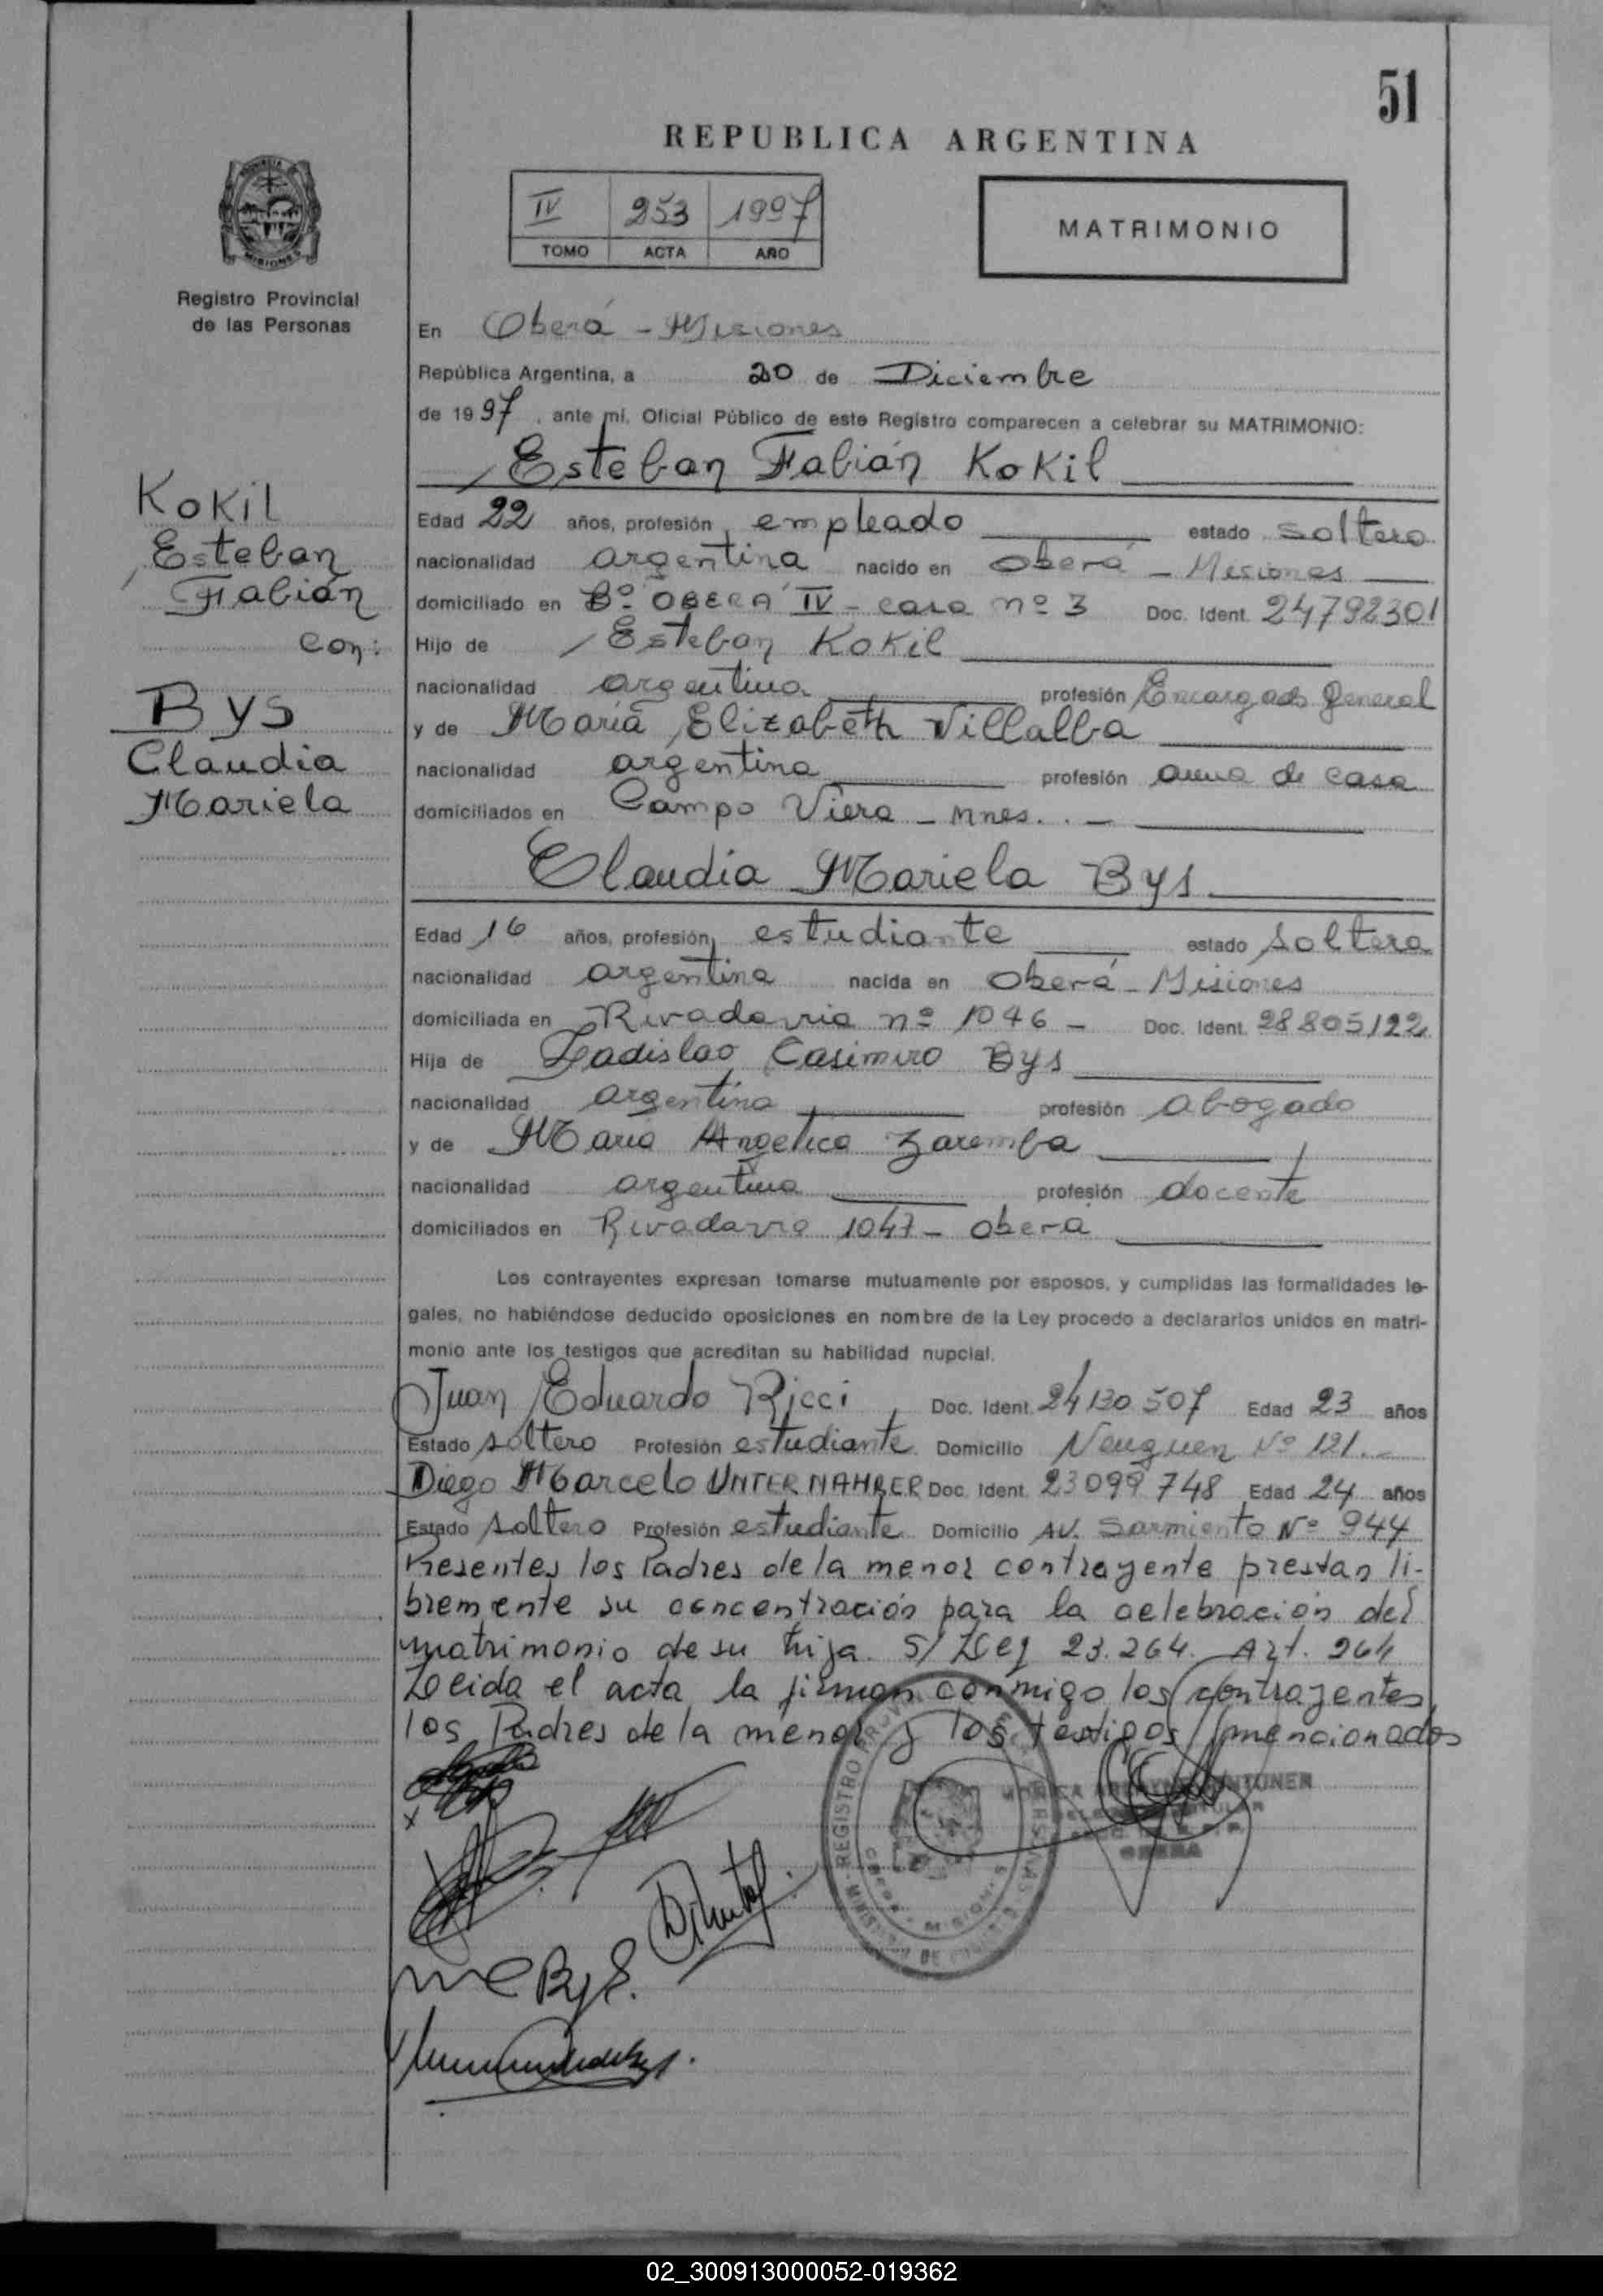 51
REPUBLICA ARGENTINA
IV 253 1997
TOMO ACTA AÑO
MATRIMONIO
Registro Provincial
de las Personas
Kokil
Esteban
Fabián
con:
Bys
Claudia
Mariela
En Oberá - Misiones
República Argentina, a 20 de Diciembre
de 1997, ante mí, Oficial Público de este Registro comparecen a celebrar su MATRIMONIO:
Esteban Fabián Kokil
Edad 22 años, profesión empleado estado soltero
nacionalidad argentina nacido en Oberá - Misiones
domiciliado en Bº OBERA IV - casa nº 3 Doc. Ident. 24792301
Hijo de Esteban Kokil
nacionalidad argentina profesión Encargado General
y de María Elizabeth Villalba
nacionalidad argentina profesión ama de casa
domiciliados en Campo Viera - Mnes. . -
Claudia Mariela Bys
Edad 16 años, profesión estudiante estado soltera
nacionalidad argentina nacida en Oberá - Misiones
domiciliada en Rivadavia nº 1046 - Doc. Ident. 28805122
Hija de Ladislao Casimiro Bys
nacionalidad argentina profesión abogado
y de Maria Angelica Zaremba
nacionalidad argentina profesión docente
domiciliados en Rivadavia 1047 - Oberá
Los contrayentes expresan tomarse mutuamente por esposos, y cumplidas las formalidades le-
gales, no habiéndose deducido oposiciones en nombre de la Ley procedo a declararlos unidos en matri-
monio ante los testigos que acreditan su habilidad nupcial.
Juan Eduardo Ricci Doc. Ident. 24130507 Edad 23 años
Estado soltero Profesión estudiante Domicilio Neuquen Nº 121.-
Diego Marcelo UNTERNAHRER Doc. Ident. 23099748 Edad 24 años
Estado soltero Profesión estudiante Domicilio AV. Sarmiento Nº 944
Presentes los Padres de la menor contrayente prestan li-
bremente su concentración para la celebración del
matrimonio de su hija. S/ Ley 23.264. Art. 264
Leida el acta la firman conmigo los contrayentes
los Padres de la menor y los testigos mencionados
02_300913000052-019362